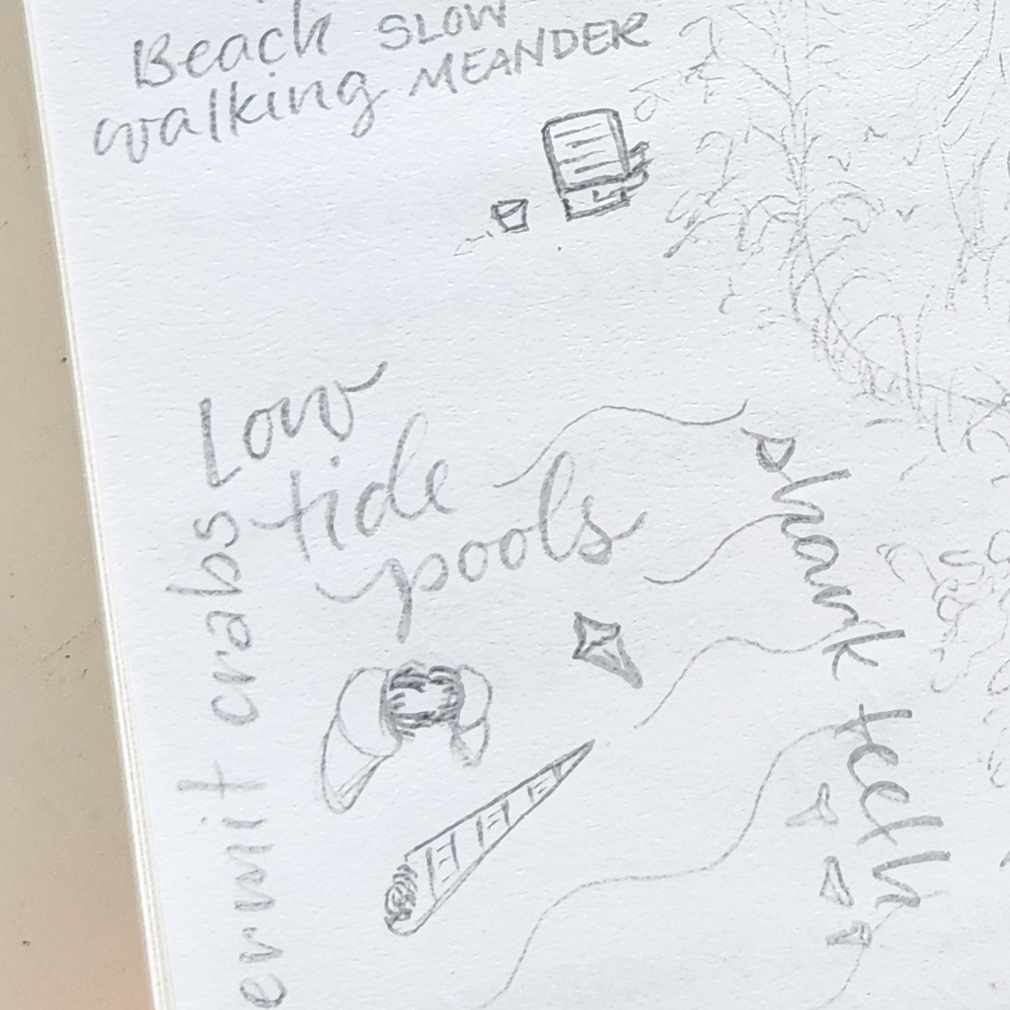 Beach SLOW
walking MEANDER
Low
tide
pools
ermit crabs
shark teeth